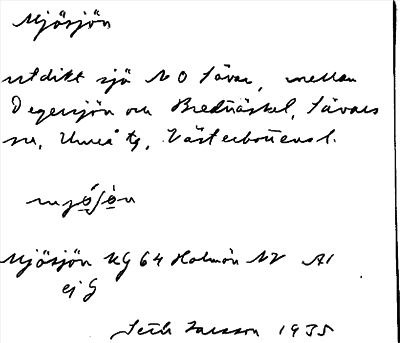 Mjösjön
utdikt sjö N O Sävar, mellan
Degersjön och Bredträsket, Sävars
sn, Umeå tg, Västerbottens l.
mjösjòn
Mjösjön KG 64 Holmön NV A1
ej G
Larsson 1935